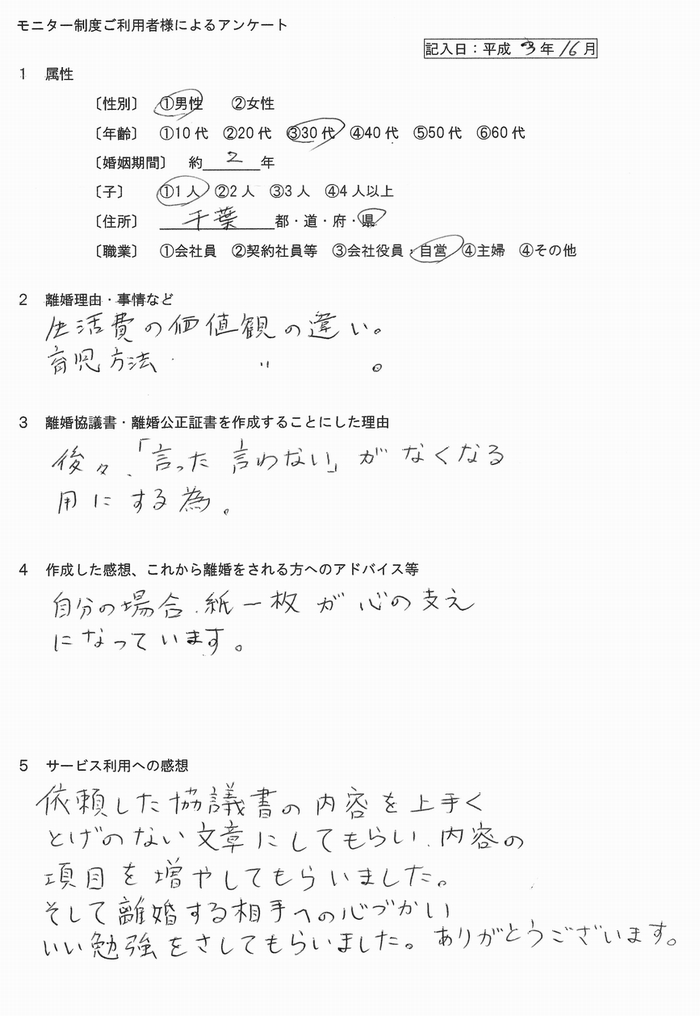 モニター制度ご利用者様によるアンケート
記入日：平成 3年 16月
1 属性
〔性別〕 ①男性 ②女性
〔年齢〕 ①10代 ②20代 ③30代 ④40代 ⑤50代 ⑥60代
〔婚姻期間〕 約 2 年
〔子〕 ①1人 ②2人 ③3人 ④4人以上
〔住所〕 千葉 都・道・府・県
〔職業〕 ①会社員 ②契約社員等 ③会社役員・自営 ④主婦 ④その他
2 離婚理由・事情など
生活費の価値観の違い。
育児方法 〃 。
3 離婚協議書・離婚公正証書を作成することにした理由
後々、「言った 言わない」がなくなる
用にする為。
4 作成した感想、これから離婚をされる方へのアドバイス等
自分の場合、紙一枚が心の支え
になっています。
5 サービス利用への感想
依頼した協議書の内容を上手く
とげのない文章にしてもらい、内容の
項目を増やしてもらいました。
そして離婚する相手への心づかい
いい勉強をさしてもらいました。ありがとうございます。